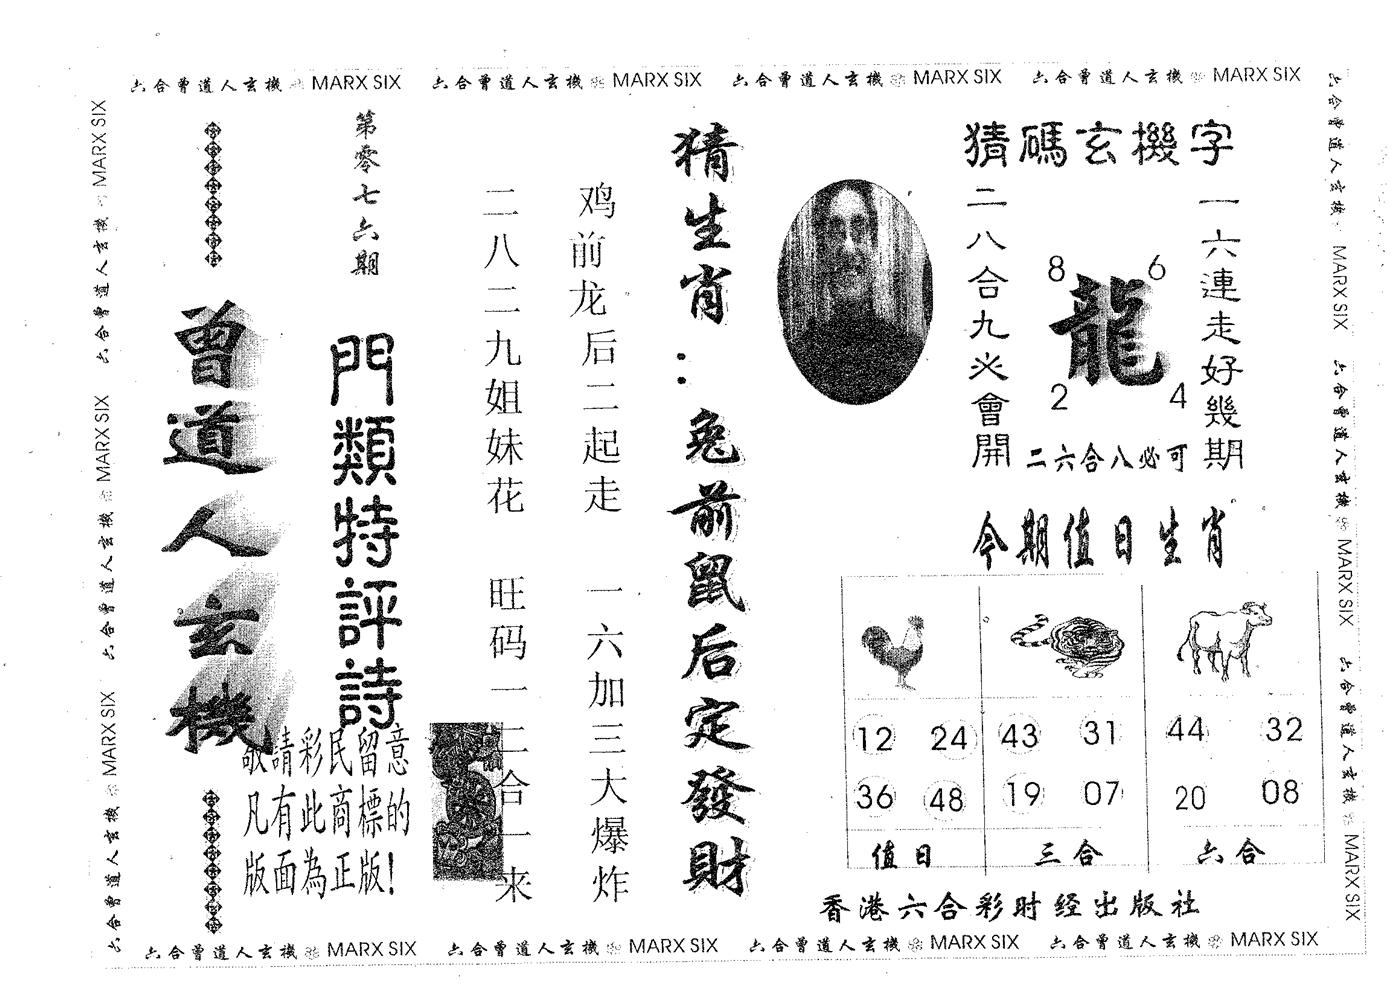 六合曾道人玄機 MARX SIX 六合曾道人玄機 MARX SIX 六合曾道人玄機 MARX SIX 六合曾道人玄機 MARX SIX
六合曾道人玄機 MARX SIX 六合曾道人玄機 MARX SIX 六合曾道人玄機 MARX SIX
曾道人玄機
第零七六期
門類特評詩
敬請彩民留意
凡有此商標的
版面為正版!
二八二九姐妹花 旺码一二合一来
鸡前龙后二起走 一六加三大爆炸
猜生肖:兔前鼠后定發財
猜碼玄機字
二八合九必會開
8 6
龍
2 4
二六合八必可
一六連走好幾期
今期值日生肖
12 24 43 31 44 32
36 48 19 07 20 08
值日 三合 六合
香港六合彩时经出版社
六合曾道人玄機 MARX SIX 六合曾道人玄機 MARX SIX 六合曾道人玄機 MARX SIX
六合曾道人玄機 MARX SIX 六合曾道人玄機 MARX SIX 六合曾道人玄機 MARX SIX 六合曾道人玄機 MARX SIX